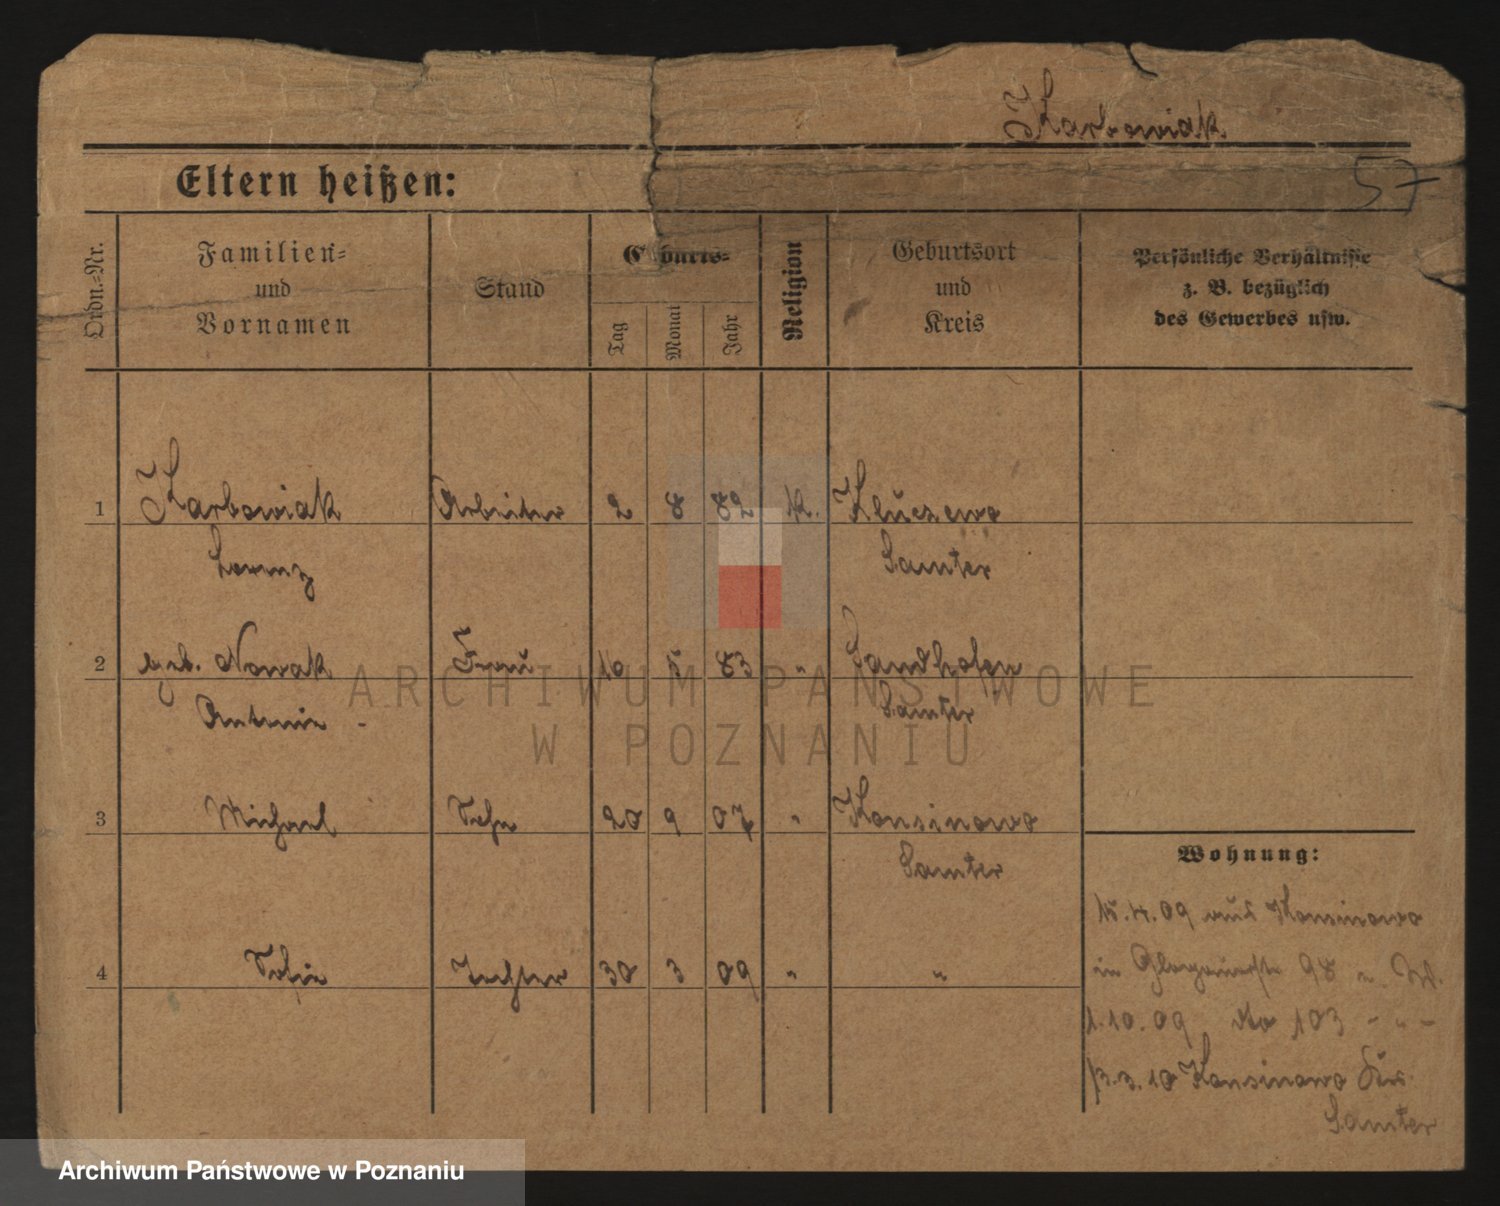 Karbowiak
57
Eltern heißen:
Ordn.-Nr.
Familien-
und
Vornamen
Stand
Geburts-
Tag
Monat
Jahr
Religion
Geburtsort
und
Kreis
Persönliche Verhältnisse
z. B. bezüglich
des Gewerbes usw.
1 Karbowiak Arbeiter 2 8 82 K. Kluczewo
Lorenz Samter
2 geb. Nowak Frau 10 5 83 " Sandhofen
Antonie - Samter
3 Michael Sohn 20 9 07 " Konsinowo
Samter
4 Sofie Tochter 30 3 09 " "
Wohnung:
15.4.09 aus Konsinowo
in Glogauerstr 98
1.10.09 dto 103 - " -
3.3.10 Konsinowo Krs
Samter
ARCHIWUM PAŃSTWOWE
W POZNANIU
Archiwum Państwowe w Poznaniu